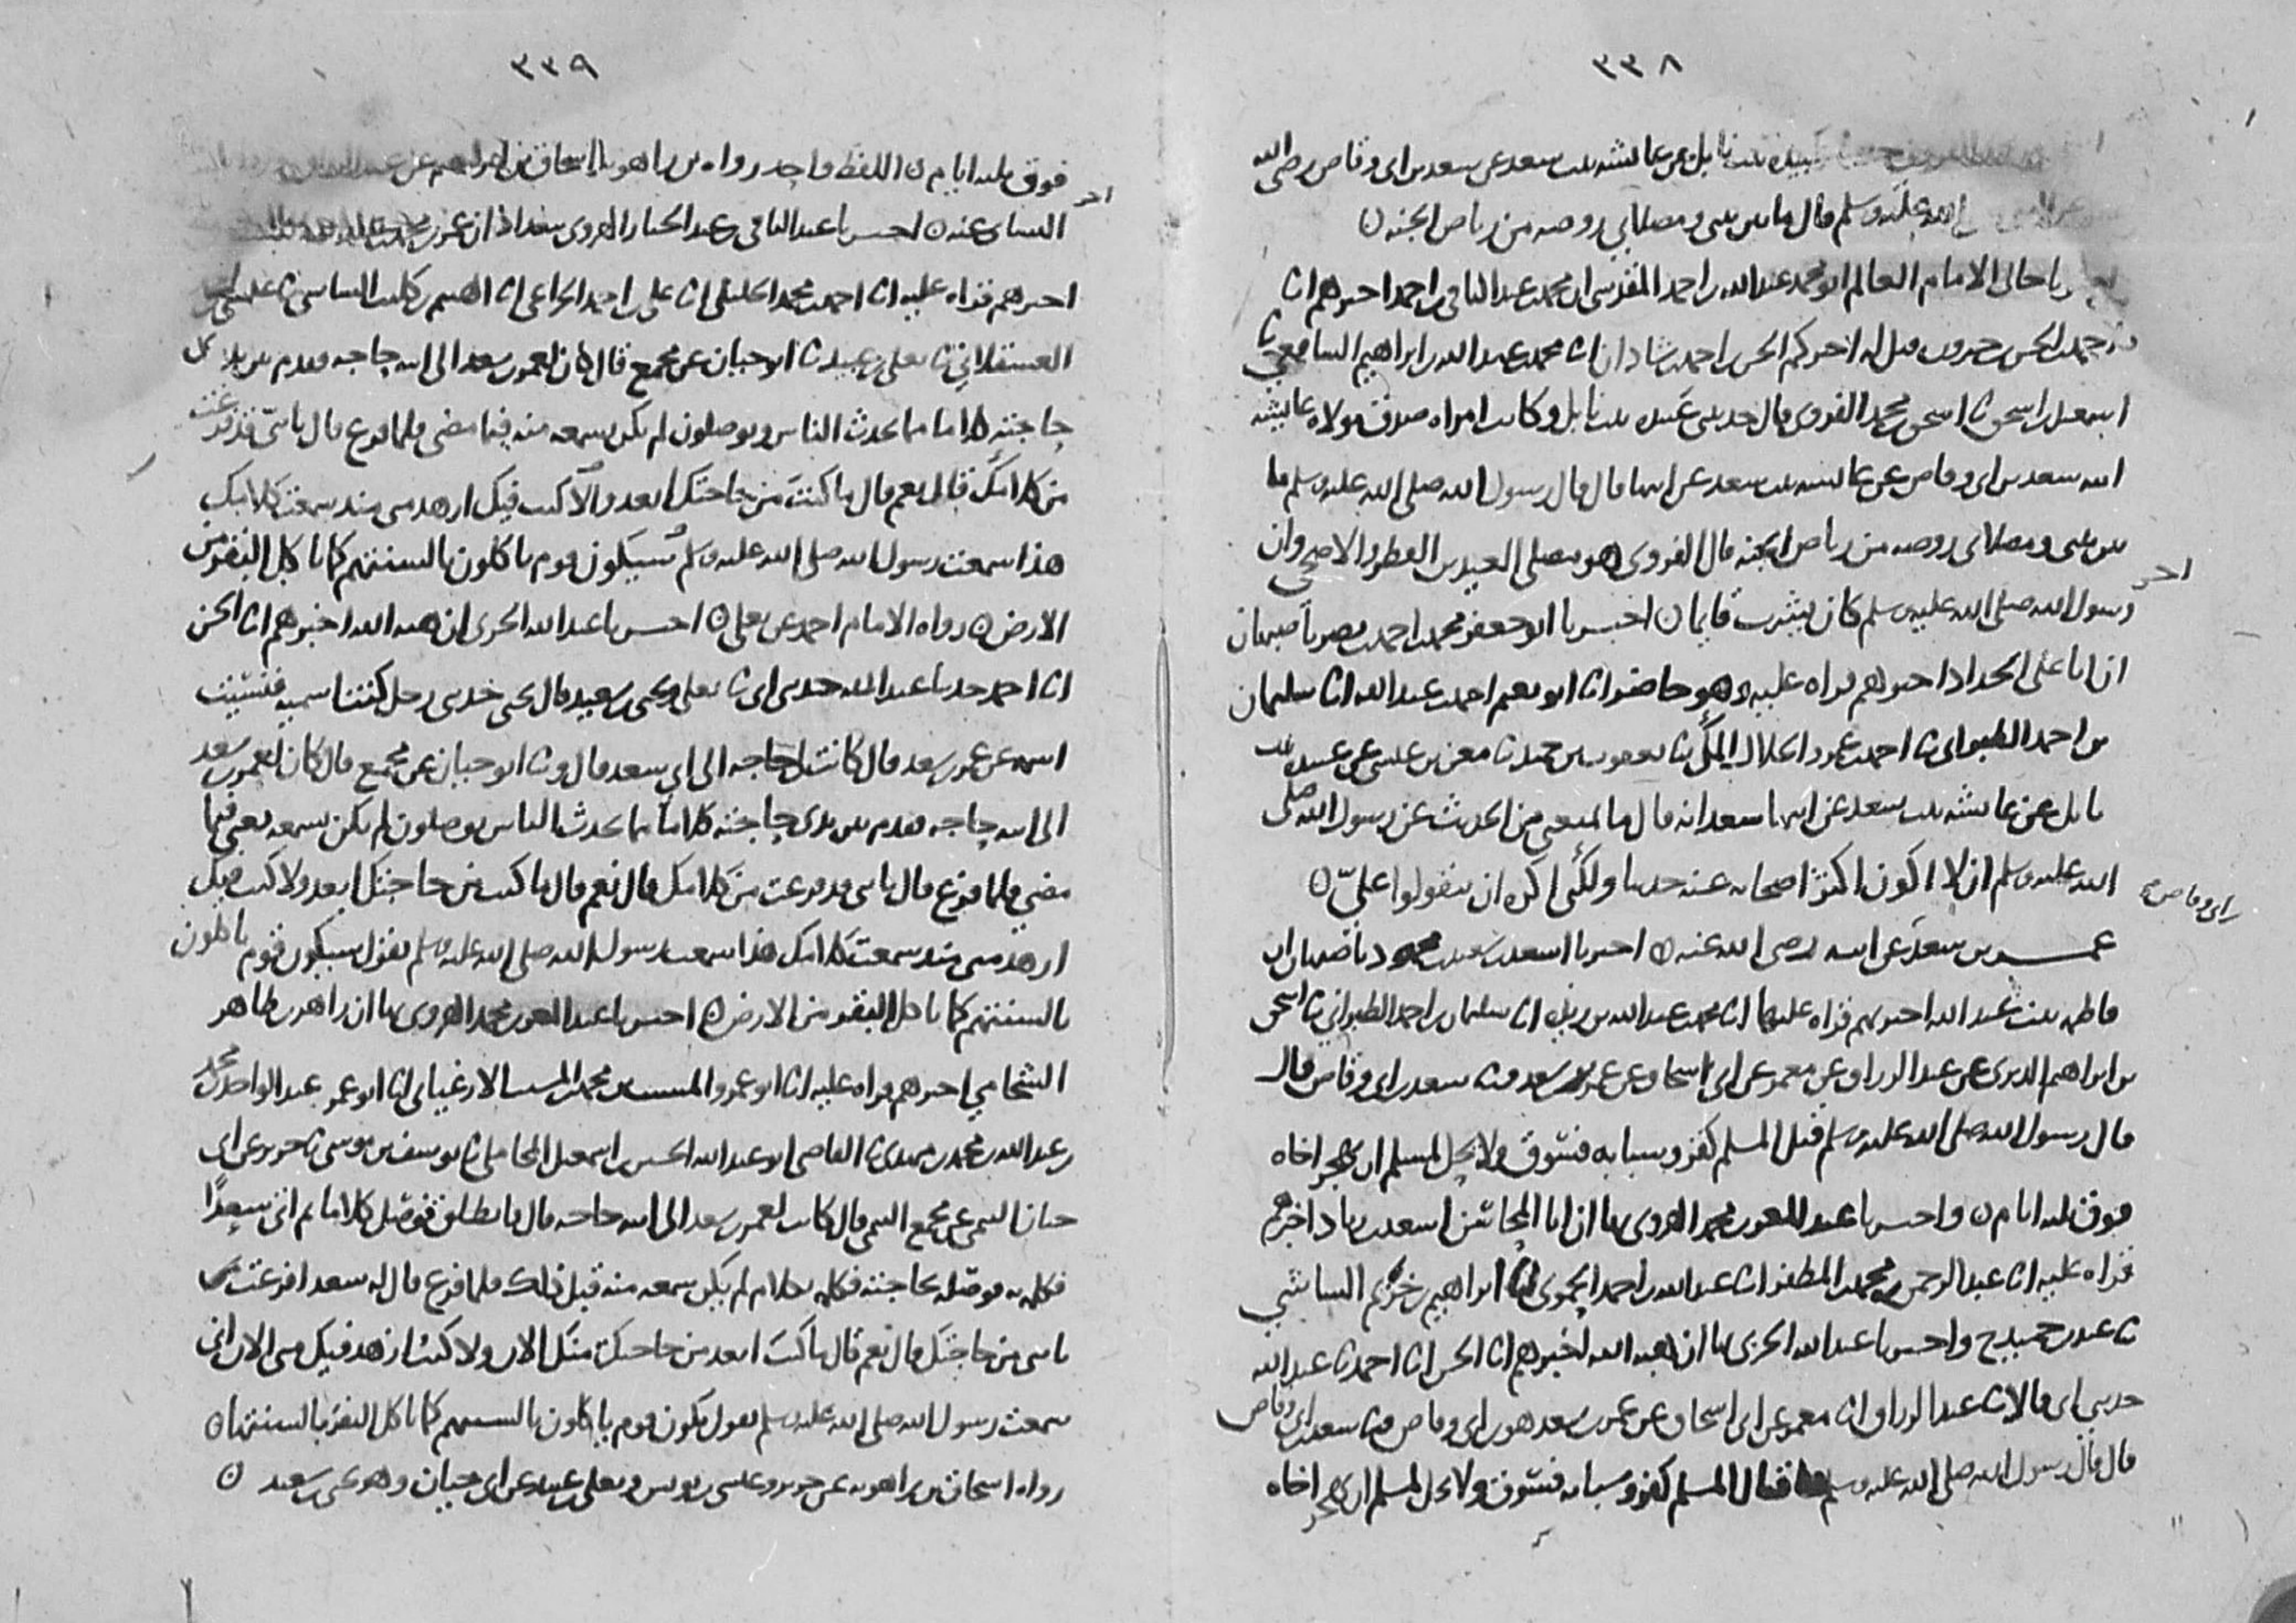 ٣٣٨
عبيدة بنت نابل عن عائشة بنت سعد عن سعد بن ابي وقاص رضي الله
الله عليه وسلم قال ما بين بيتي ومصلاي روضة من رياض الجنة ٥
خالي الامام العالم ابو محمد عبد الله بن احمد المقدسي ان محمد بن عبد الباقي بن احمد اخبرهم انا
احمد بن الحسن بن خيرون قيل له اخبركم الحسن بن احمد بن شاذان انا محمد بن عبد الله بن ابراهيم الشافعي ثنا
اسمعيل بن اسحق ثنا اسحق بن محمد الفروي قال حدثتني عبيدة بنت نابل وكانت امراة صدق مولاة عايشة
ابنة سعد بن ابي وقاص عن عايشة بنت سعد عن ابيها قال قال رسول الله صلى الله عليه وسلم ما
بين بيتي ومصلاي روضة من رياض الجنة قال الفروي وهو مصلى العيدين الفطر والاضحى وان
رسول الله صلى الله عليه وسلم كان يشرب قايما ٥ اخبرنا ابو جعفر محمد بن احمد بن نصر باصبهان
اخر
ان ابا علي الحداد اخبرهم قراة عليه وهو حاضر انا ابو نعيم احمد بن عبد الله انا سليمان
بن احمد الطبراني ثنا احمد بن عمرو الخلال المكي ثنا يعقوب بن حميد ثنا معن بن عيسى عن عبيدة بنت
نابل عن عايشة بنت سعد عن ابيها سعد انه قال ما يمنعني من الحديث عن رسول الله صلى
الله عليه وسلم ان لا اكون اكثر اصحابه عنه حديثا ولكني اكره ان يتقولوا علي ٥
عمر بن سعد عن ابيه رضي الله عنه ٥ اخبرنا اسعد بن سعيد بن محمود باصبهان ان
بن ابي وقاص
فاطمة بنت عبد الله اخبرتهم قراة عليها انا محمد بن عبد الله بن ريذة انا سليمان بن احمد الطبراني ثنا اسحق
بن ابراهيم الدبري عن عبد الرزاق عن معمر عن ابي اسحاق عن عمر بن سعد ثنا سعد بن ابي وقاص قال
قال رسول الله صلى الله عليه وسلم قتل المسلم كفر وسبابه فسوق ولا يحل لمسلم ان يهجر اخاه
فوق ثلثة ايام ٥ واخبرنا عبد المعز بن محمد الهروي بها ان ابا المحاسن اسعد بن زياد اخبرهم
قراة عليه انا عبد الرحمن بن محمد بن المظفر انا عبد الله بن احمد الحموي انا ابراهيم بن خزيم الشاشي
ثنا عبد بن حميد ح واخبرنا عبد الله الحربي بها ان هبة الله اخبرهم انا الحسن انا احمد ثنا عبد الله
حدثني ابي قالا ثنا عبد الرزاق انا معمر عن ابي اسحاق عن عمر بن سعد هو بن ابي وقاص ثنا سعد بن ابي وقاص
قال قال رسول الله صلى الله عليه وسلم قتال المسلم كفر وسبابه فسوق ولا يحل لمسلم ان يهجر اخاه
٣٣٩
فوق ثلثة ايام ٥ اللفظ واحد رواه بن راهويه اسحاق بن ابراهيم عن عبد الرزاق
اخر
النسائي عنه ٥ اخبرنا عبد الباقي بن عبد الجبار الهروي ببغداد ان عمر بن محمد
اخبرهم قراة عليه انا احمد بن محمد الخليلي انا علي بن احمد الخزاعي انا الهيثم بن كليب الشاشي ثنا عيسى بن احمد
العسقلاني ثنا يعلى بن عبيد ثنا ابو حيان عن مجمع قال كان لعمر بن سعد الى ابيه حاجة فقدم بين يدي
حاجته كلاما مما يحدث الناس ويوصلون لم يكن يسمعه منه فيما مضى فلما فرغ قال يا بني قد فرغت
من كلامك قال نعم قال ما كنت من حاجتك ابعد ولا كنت فيك ازهد مني منذ سمعت كلامك
هذا سمعت رسول الله صلى الله عليه وسلم سيكون قوم ياكلون بالسنتهم كما ياكل البقر من
الارض ٥ رواه الامام احمد عن يعلى ٥ اخبرنا عبد الله الحربي ان هبة الله اخبرهم انا الحسن
انا احمد حدثنا عبد الله حدثني ابي ثنا يعلى ويحيى بن سعيد قال يحيى حدثني رجل كنت اسميه فنسيت
اسمه عن عمر بن سعد قال كانت لي حاجة الى ابي سعد قال وثنا ابو حيان عن مجمع قال كان لعمر بن سعد
الى ابيه حاجة فقدم بين يدي حاجته كلاما مما يحدث الناس يوصلون لم يكن يسمعه يعني فيما
مضى فلما فرغ قال يا بني قد فرغت من كلامك قال نعم قال ما كنت من حاجتك ابعد ولا كنت فيك
ازهد مني منذ سمعت كلامك هذا سمعت رسول الله صلى الله عليه وسلم يقول سيكون قوم ياكلون
بالسنتهم كما ياكل البقر من الارض ٥ اخبرنا عبد المعز بن محمد الهروي بها ان زاهر بن طاهر
الشحامي اخبرهم قراة عليه انا ابو عمرو الارغياني انا ابو عمر عبد الواحد بن محمد
بن عبد الله بن محمد بن مهدي ثنا القاضي ابو عبد الله الحسين بن اسمعيل المحاملي ثنا يوسف بن موسى ثنا جرير عن ابي
حيان التيمي عن مجمع التيمي قال كانت لعمر بن سعد الى ابيه حاجة قال فانطلق فوصل كلاما ثم اتى سعدا
فكلمه به فوصله بحاجته فكلمه بكلام لم يكن سمعه منه قبل ذلك فلما فرغ قال له سعد افرغت
يا بني من حاجتك قال نعم قال ما كنت ابعد من حاجتك منك الان ولا كنت ازهد فيك مني الان اني
سمعت رسول الله صلى الله عليه وسلم يقول يكون قوم ياكلون بالسنتهم كما ياكل البقر بالسنتها ٥
رواه اسحاق بن راهويه عن جرير وعيسى بن يونس ويعلى بن عبيد عن ابي حيان وهو يحيى بن سعيد ٥